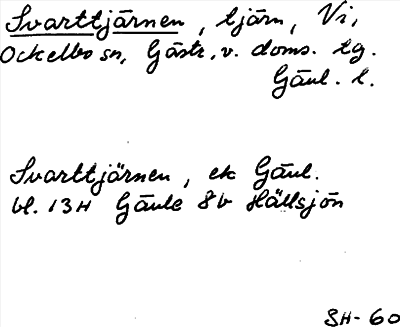 Svarttjärnen, tjärn, Vi,
Ockelbo sn, Gästr. v. doms. tg.
Gävl. l.
Svarttjärnen, ek Gävl.
bl. 13H Gävle 8b Hällsjön
SH-60